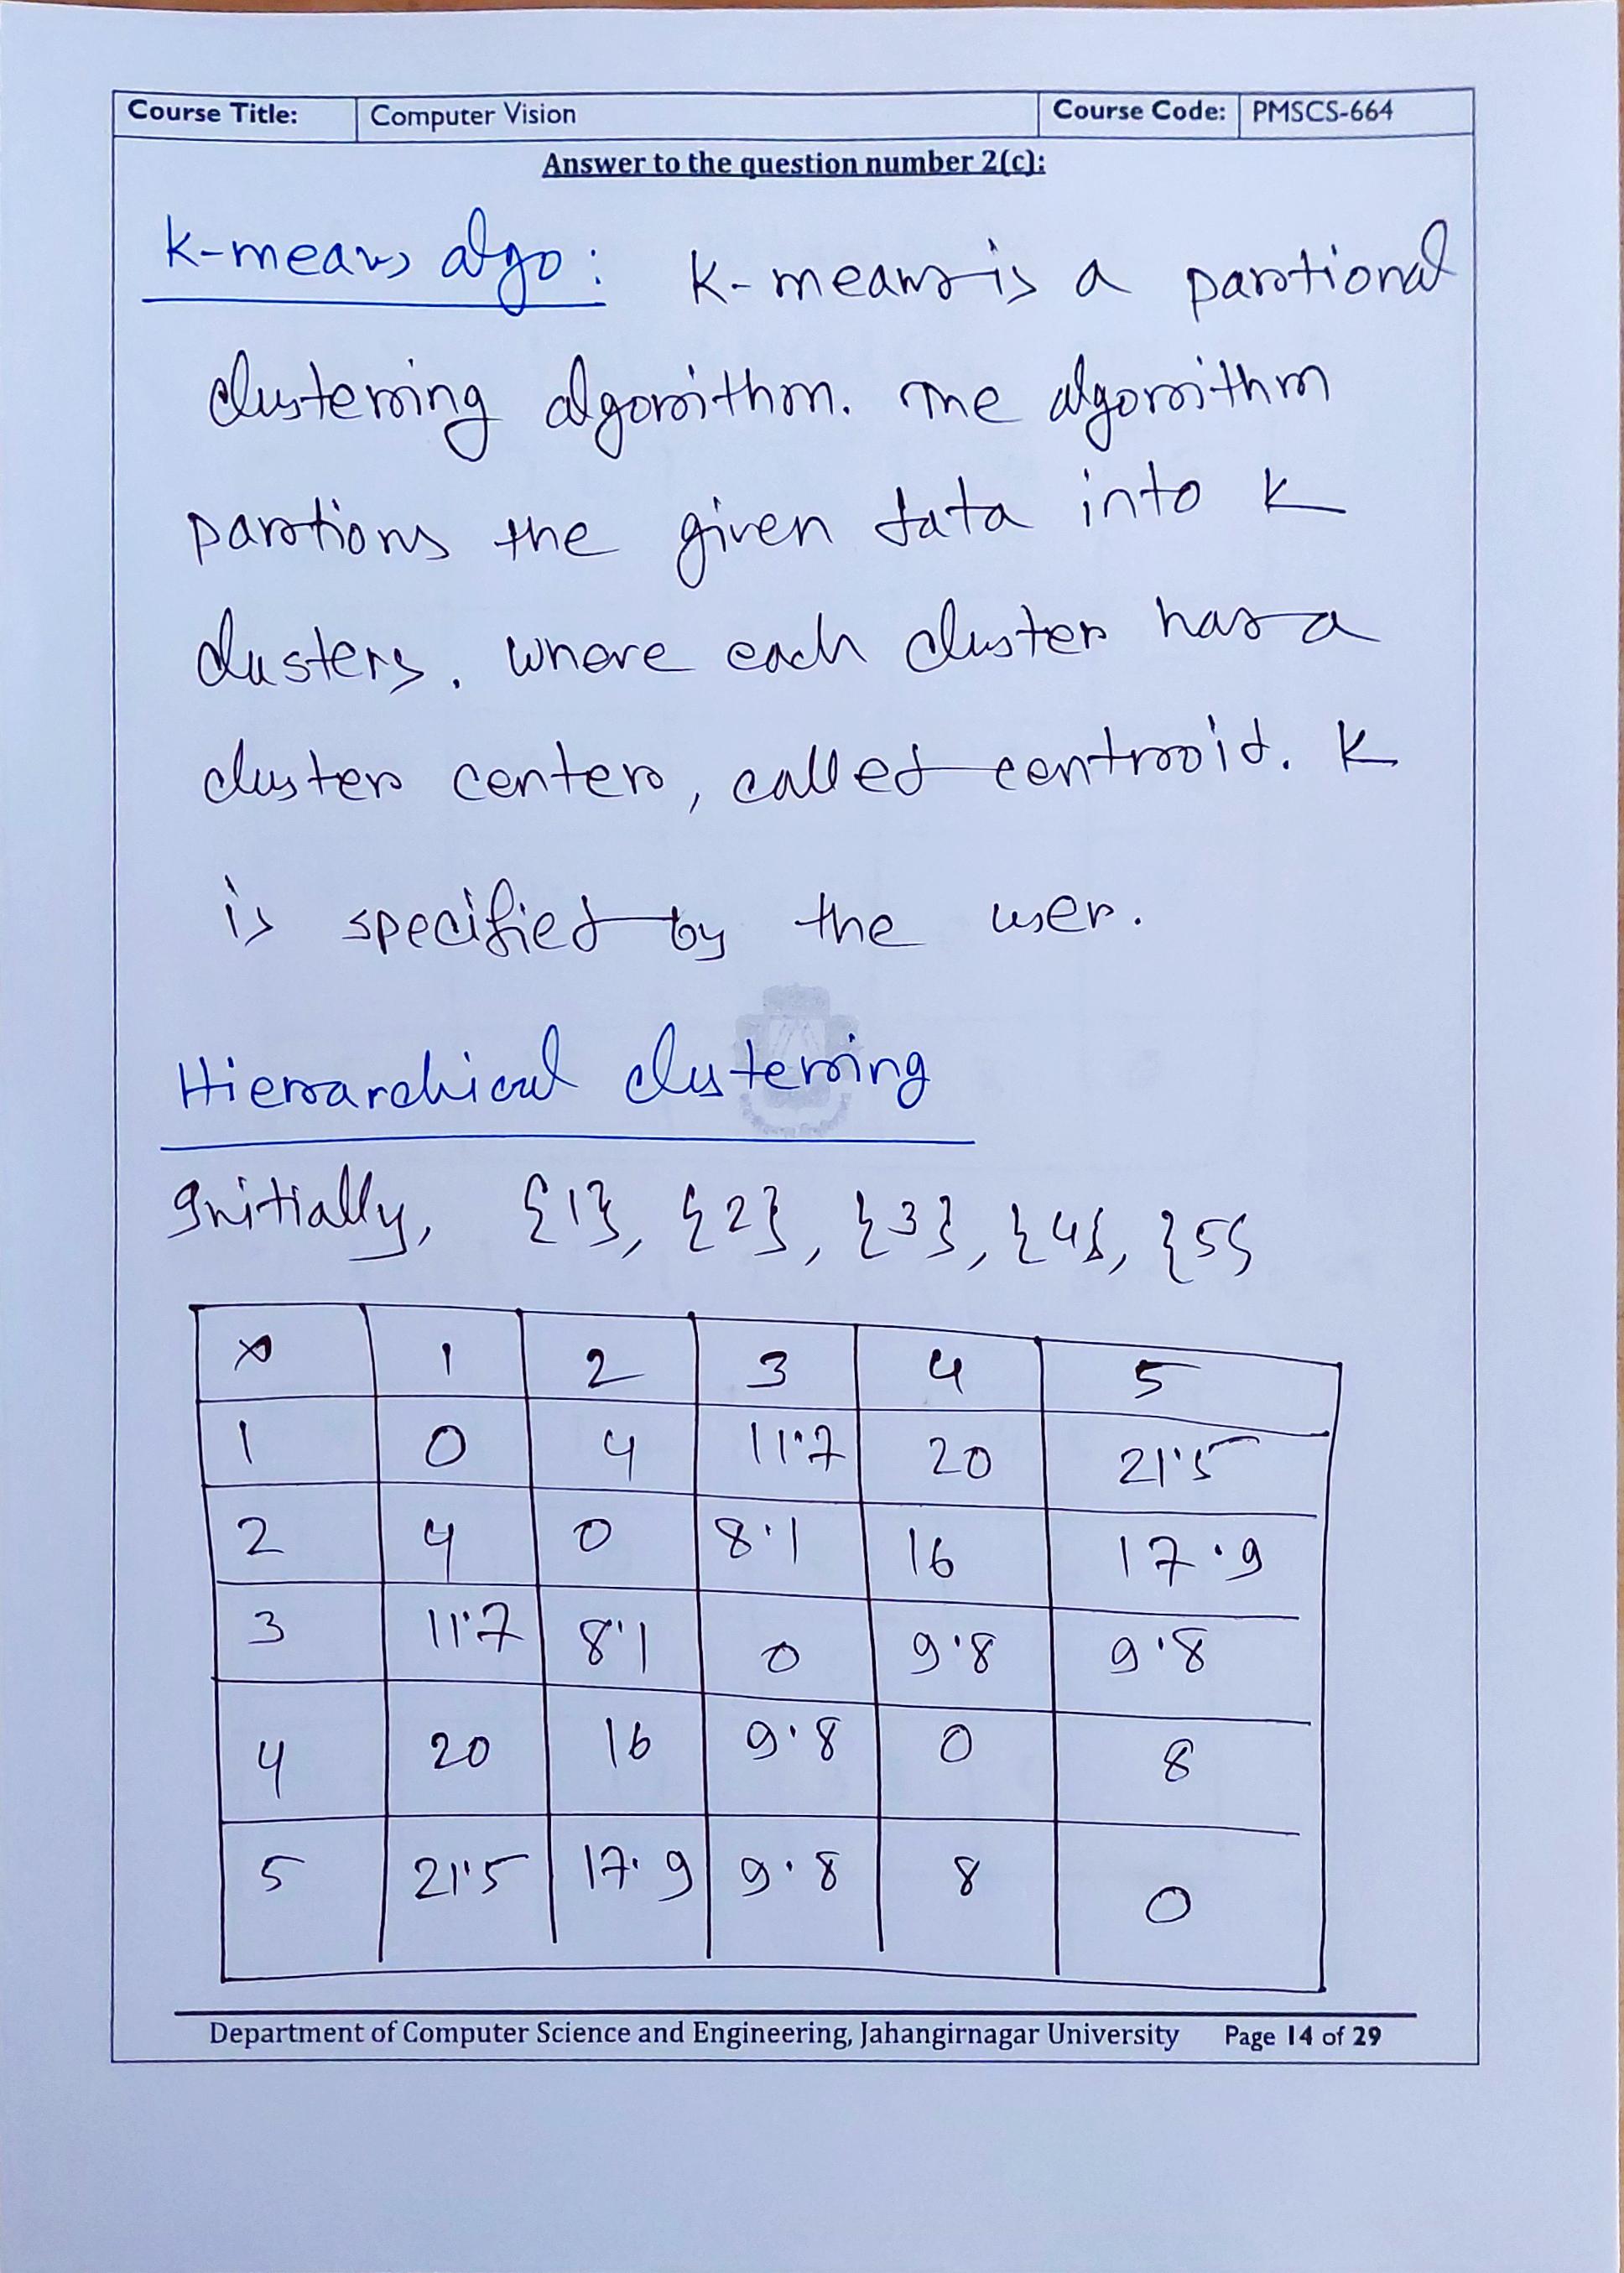 Course Title: Computer Vision Course Code: PMSCS-664
Answer to the question number 2(c):
K-means algo: K-means is a partional
clustering algorithm. The algorithm
partions the given data into K
clusters. Where each cluster has a
cluster center, called centroid. K
is specified by the user.
Hierarchical clustering
Initially, {1}, {2}, {3}, {4}, {5}
x 1 2 3 4 5
1 0 4 11.7 20 21.5
2 4 0 8.1 16 17.9
3 11.7 8.1 0 9.8 9.8
4 20 16 9.8 0 8
5 21.5 17.9 9.8 8 0
Department of Computer Science and Engineering, Jahangirnagar University Page 14 of 29